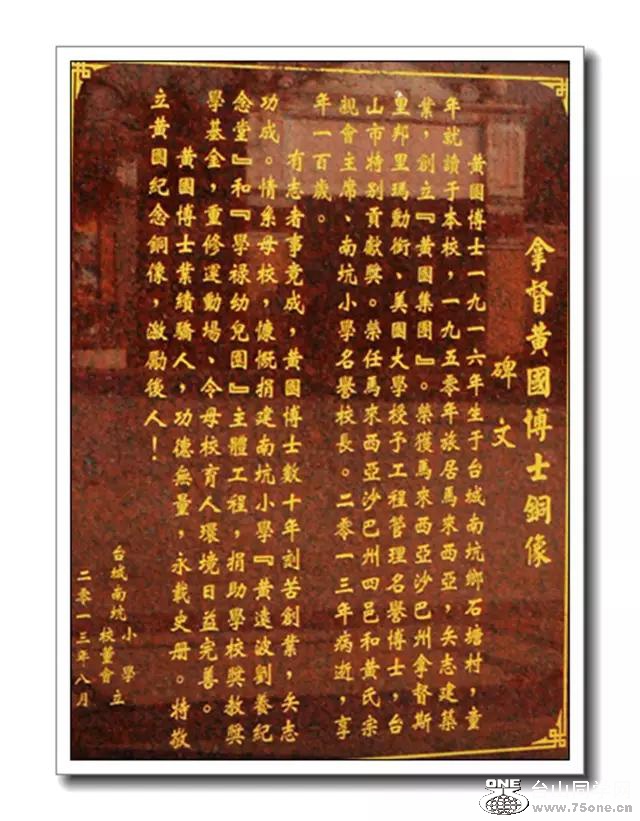 拿督黃國博士銅像
碑文
黃國博士一九一六年生于台城南坑鄉石塘村，童
年就讀于本校，一九五零年旅居馬來西亞，矢志建築
業，創立『黃國集團』。榮獲馬來西亞沙巴州拿督斯
里邦里瑪勳銜、美國大學授予工程管理名譽博士，台
山市特别貢獻獎。榮任馬來西亞沙巴州四邑和黃氏宗
親會主席、南坑小學名譽校長。二零一三年病逝，享
年一百歲。
有志者事竟成，黃國博士數十年刻苦創業，矢志
功成。情系母校，慷慨捐建南坑小學『黃遠波劉養紀
念堂』和『學禄幼兒園』主體工程，捐助學校獎教獎
學基金，重修運動場、令母校育人環境日益完善。
黃國博士業績驕人，功德無量，永載史册。特敬
立黃國紀念銅像，激勵後人！
台城南坑小學校董會立
二零一三年八月
ONE 台山同学网
www.75one.cn